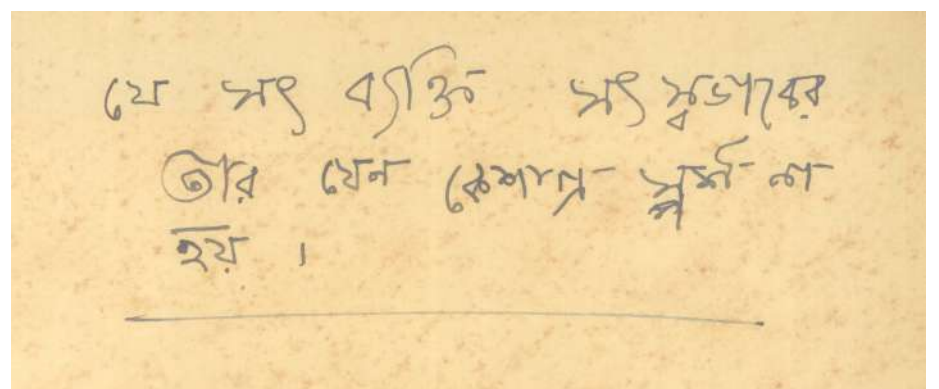 যে সৎ ব্যক্তি সৎ স্বভাবের
তার যেন কেশাগ্র স্পর্শ না
হয় ।